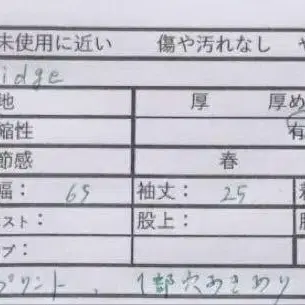 未使用に近い 傷や汚れなし
idge
地 厚 厚め
縮性 有
節感 春
幅: 65 袖丈: 25
スト: 股上:
プ:
プリント、1部穴あきあり